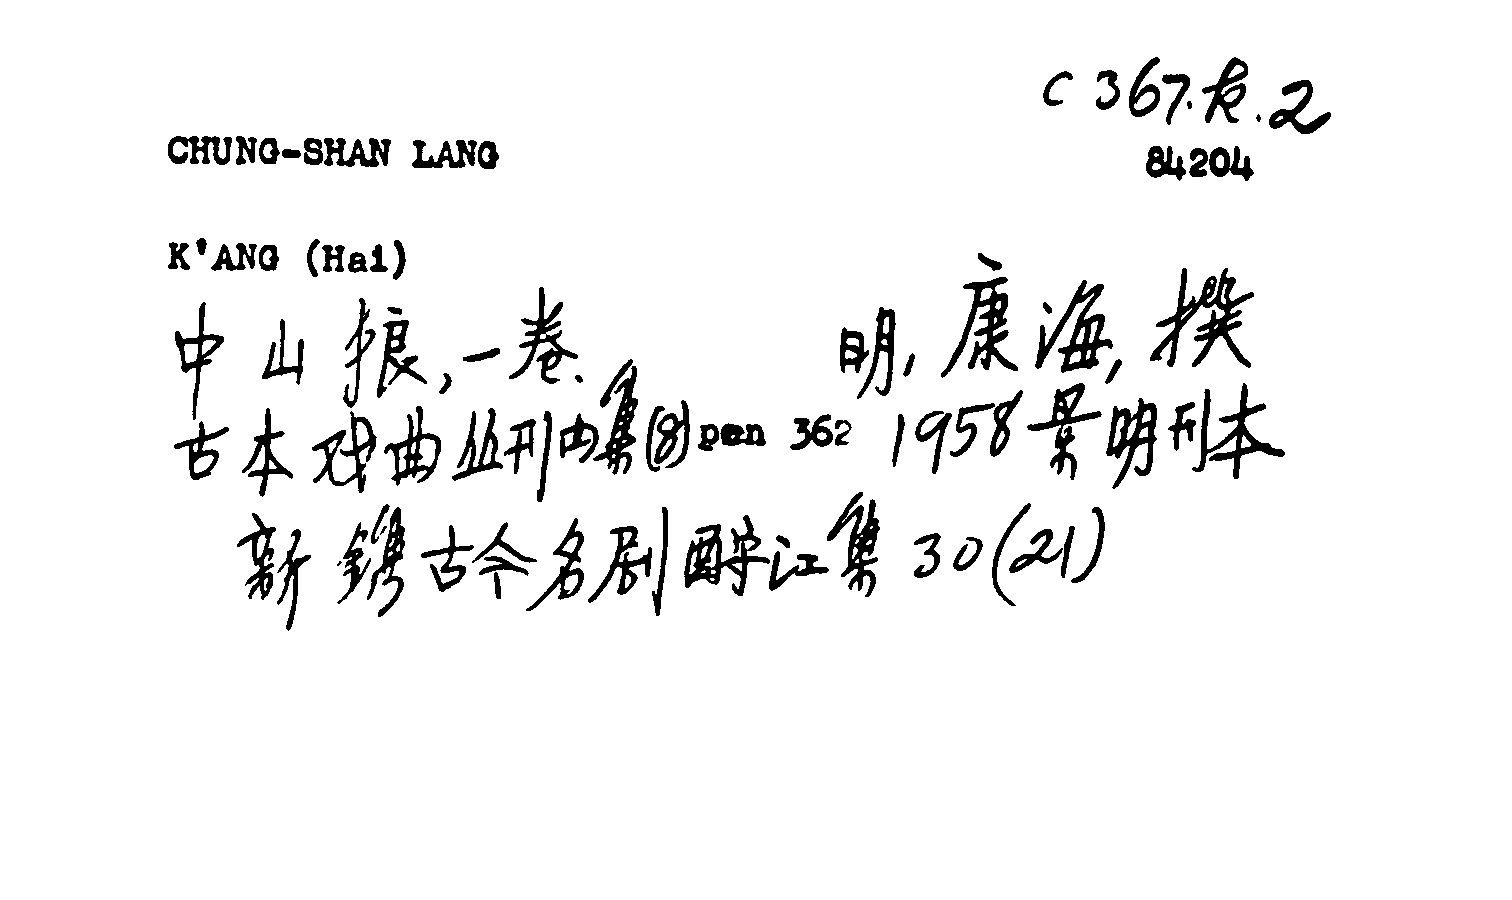 C 367.k.2
CHUNG-SHAN LANG 84204
K'ANG (Hai)
中山狼,一卷. 明,康海,撰
古本戏曲丛刊四集(8) pen 362 1958景明刊本
新鐫古今名剧酹江集 30(21)